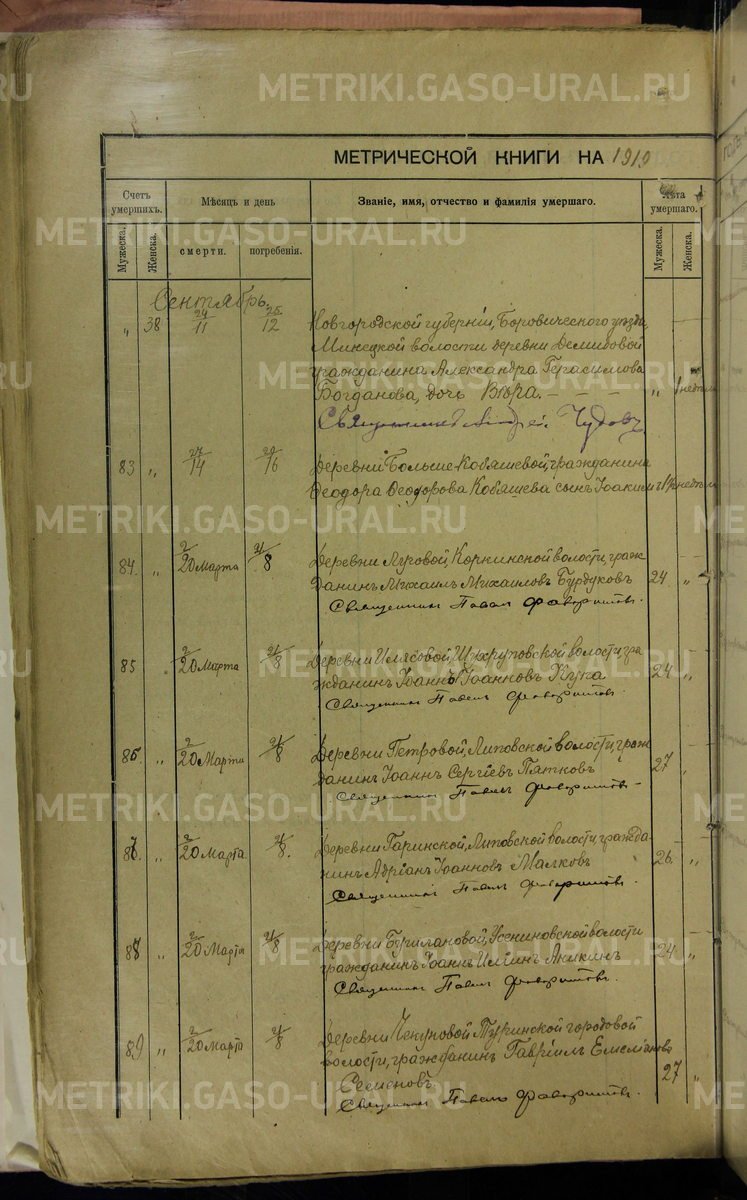 METRIKI.GASO-URAL.RU
МЕТРИЧЕСКОЙ КНИГИ НА 1919
Счетъ умершихъ.
Мѣсяцъ и день
Званіе, имя, отчество и фамилія умершаго.
Лѣта умершаго.
Мужеска.
Женска.
смерти.
погребенія.
Мужеска.
Женска.
Сентябрь.
„ 38 24/11 25/12 Новгородской губерніи, Боровичскаго уѣзда,
Минецкой волости деревни Демидовой
гражданина Александра Герасимова
Богданова, дочь Вѣра. – – – „ 1 недѣли
Священникъ Андрей Чудовъ
83 „ 27/14 29/16 Деревни Больше-Кобяшевой, гражданина
Ѳеодора Ѳеодорова Кобяшева сынъ Іоакимъ
84 „ 2/20 Марта 21/8 Деревни Луговой, Коркинской волости, граж
данинъ Михаилъ Михаиловъ Бурдуковъ 24 „
Священникъ Павелъ Фаворитовъ.
85 „ 2/20 Марта 21/8 Деревни Илясовой, волости, гра
жданинъ Іоаннъ Іоанновъ 24 „
Священникъ Павелъ Фаворитовъ.
86 „ 2/20 Марта 21/8 Деревни Петровой, Липовской волости, граж
данинъ Іоаннъ Сергіевъ Пятковъ 27 „
Священникъ Павелъ Фаворитовъ
87 „ 2/20 Марта 21/8. Деревни Гаринской, Липовской волости, гражда
нинъ Адріанъ Іоанновъ Малковъ 26 „
Священникъ Павелъ Фаворитовъ.
88 „ 2/20 Марта 21/8 Деревни Усениновской волости
гражданинъ Іоаннъ Иліинъ Аникинъ 24 „
Священникъ Павелъ Фаворитовъ.
89 „ 2/20 Марта 21/8 Деревни Чекуновой Туринской городовой
волости, гражданинъ Гавріилъ Емеліановъ
Семеновъ 27 „
Священникъ Павелъ Фаворитовъ.